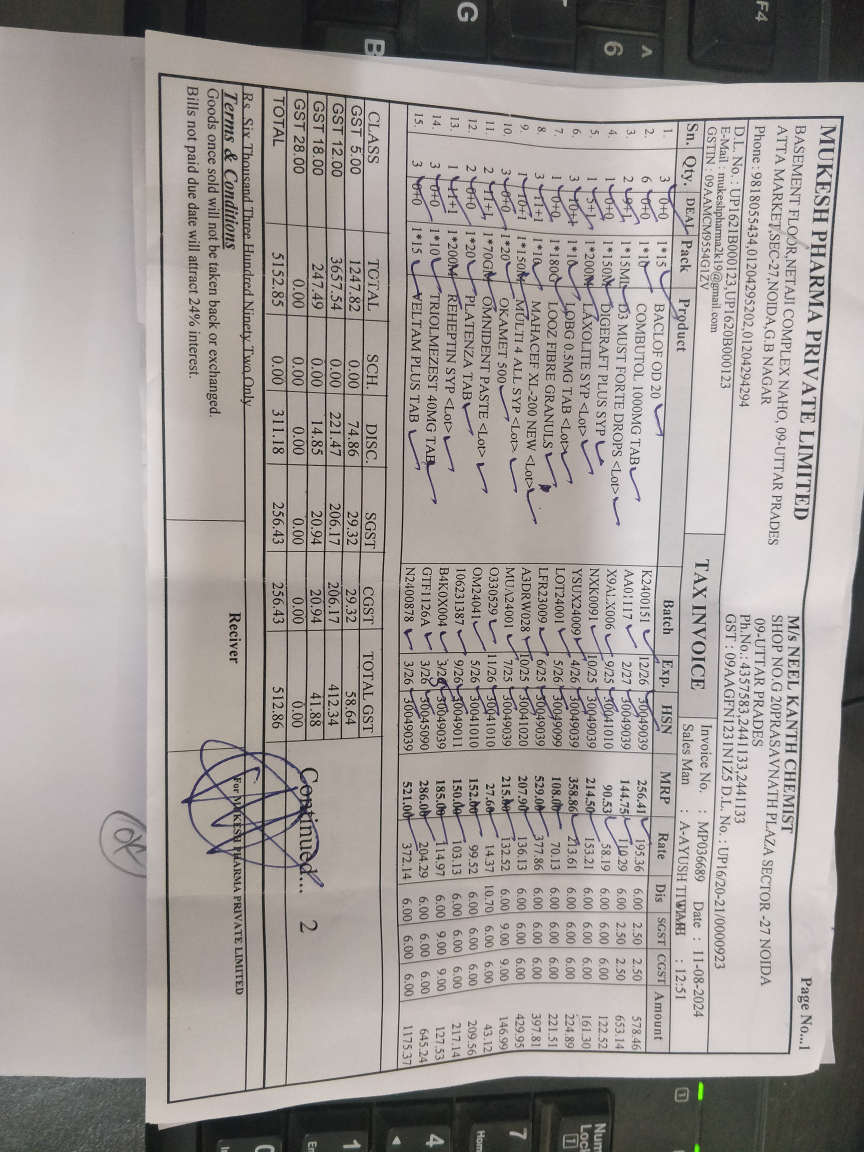 Page No...1
MUKESH PHARMA PRIVATE LIMITED
BASEMENT FLOOR,NETAJI COMPLEX NAHO, 09-UTTAR PRADES
ATTA MARKET,SEC-27,NOIDA,G.B NAGAR
Phone : 9818055434,01204295202,01204294294
D.L. No. : UP1621B000123,UP1620B000123
E-Mail : mukeshpharma2k19@gmail.com
GSTIN : 09AAMCM9554G1ZV
M/s NEEL KANTH CHEMIST
SHOP NO.G 20PRASAVNATH PLAZA SECTOR -27 NOIDA
09-UTTAR PRADES
Ph.No.: 4357583,2441133,2441133
GST : 09AAGFN1231N1Z5 D.L. No. : UP16/20-21/0000923
TAX INVOICE
Invoice No. : MP036689 Date : 11-08-2024
Sales Man : A-AYUSH : 12:51
Sn. Qty. DEAL Pack Product Batch Exp. HSN MRP Rate Dis SGST CGST Amount
1. 3 0+0 1*15 BACLOF OD 20 K2400151 12/26 30049039 256.41 195.36 6.00 2.50 2.50 578.46
2. 6 0+0 1*10 COMBUTOL 1000MG TAB AA01117 2/27 30049039 144.75 110.29 6.00 2.50 2.50 653.14
3. 2 9+1 1*15ML D3 MUST FORTE DROPS <Lot> X9ALX006 9/25 30041010 90.53 58.19 6.00 6.00 6.00 122.52
4. 1 0+0 1*150M DIGERAFT PLUS SYP NXK0091 10/25 30049039 214.50 153.21 6.00 6.00 6.00 161.30
5. 1 5+1 1*200M LAXOLITE SYP <Lot> YSUX24009 4/26 30049039 358.86 213.61 6.00 6.00 6.00 224.89
6. 3 10+1 1*10 LOBG 0.5MG TAB <Lot> LOT24001 5/26 30049099 108.00 70.13 6.00 6.00 6.00 221.51
7. 1 0+0 1*180G LOOZ FIBRE GRANULS LFR23009 6/25 30049039 529.00 377.86 6.00 6.00 6.00 397.81
8. 3 11+1 1*10 MAHACEF XL-200 NEW <Lot> A3DRW028 10/25 30041020 207.90 136.13 6.00 6.00 6.00 429.95
9. 1 10+1 1*150M MULTI 4 ALL SYP <Lot> MUA24001 7/25 30049039 215.00 132.52 6.00 9.00 9.00 146.99
10. 3 0+0 1*20 OKAMET 500 O330529 11/26 30041010 27.60 14.37 10.70 6.00 6.00 43.12
11. 2 11+1 1*70GM OMNIDENT PASTE <Lot> OM24041 5/26 30041010 152.00 99.52 6.00 6.00 6.00 209.56
12. 2 0+0 1*20 PLATENZA TAB 106231387 9/26 30049011 150.00 103.13 6.00 6.00 6.00 217.14
13. 1 11+1 1*200M REHEPTIN SYP <Lot> B4K0X004 3/26 30049039 185.00 114.97 6.00 9.00 9.00 127.53
14. 3 0+0 1*10 TRIOLMEZEST 40MG TAB GTF1126A 3/26 30045090 286.00 204.29 6.00 6.00 6.00 645.24
15. 3 0+0 1*15 VELTAM PLUS TAB N2400878 3/26 30049039 521.00 372.14 6.00 6.00 6.00 1175.37
CLASS TOTAL SCH. DISC. SGST CGST TOTAL GST
GST 5.00 1247.82 0.00 74.86 29.32 29.32 58.64
GST 12.00 3657.54 0.00 221.47 206.17 206.17 412.34
GST 18.00 247.49 0.00 14.85 20.94 20.94 41.88
GST 28.00 0.00 0.00 0.00 0.00 0.00 0.00
TOTAL 5152.85 0.00 311.18 256.43 256.43 512.86
Continued... 2
Rs. Six Thousand Three Hundred Ninety Two Only
Terms & Conditions
Goods once sold will not be taken back or exchanged.
Bills not paid due date will attract 24% interest.
Reciver
For MUKESH PHARMA PRIVATE LIMITED
OK
F4
G
6
^
B
Num
Lock
1
7
Home
4
1
0